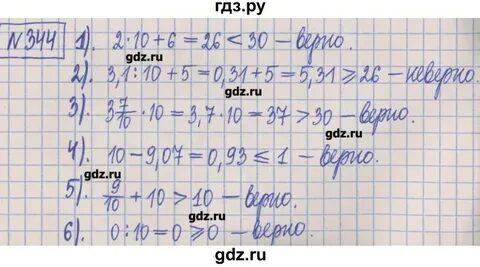 гдз.ру
№344 1). 2·10+6=26<30 – верно.
gdz.ru
2). 3,1:10+5=0,31+5=5,31⩾26 – неверно.
gdz.ru
3). 3 7/10 ·10=3,7·10=37>30 – верно.
gdz.ru
4). 10–9,07=0,93⩽1 – верно.
gdz.ru
5). 9/10 +10>10 – верно.
gdz.ru
6). 0:10=0⩾0 – верно.
gdz.ru